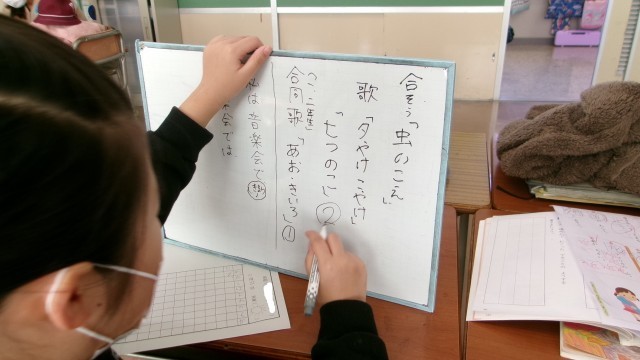 合そう「虫のこえ」
歌「夕やけこやけ」
「七つのこ」②
(一、二年生)
合同歌「あお・きいろ」①
私は音楽会で
会では